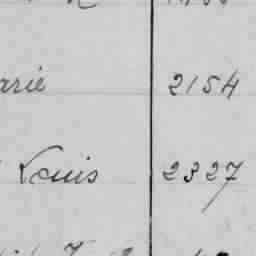 arie 2154
Louis 2327